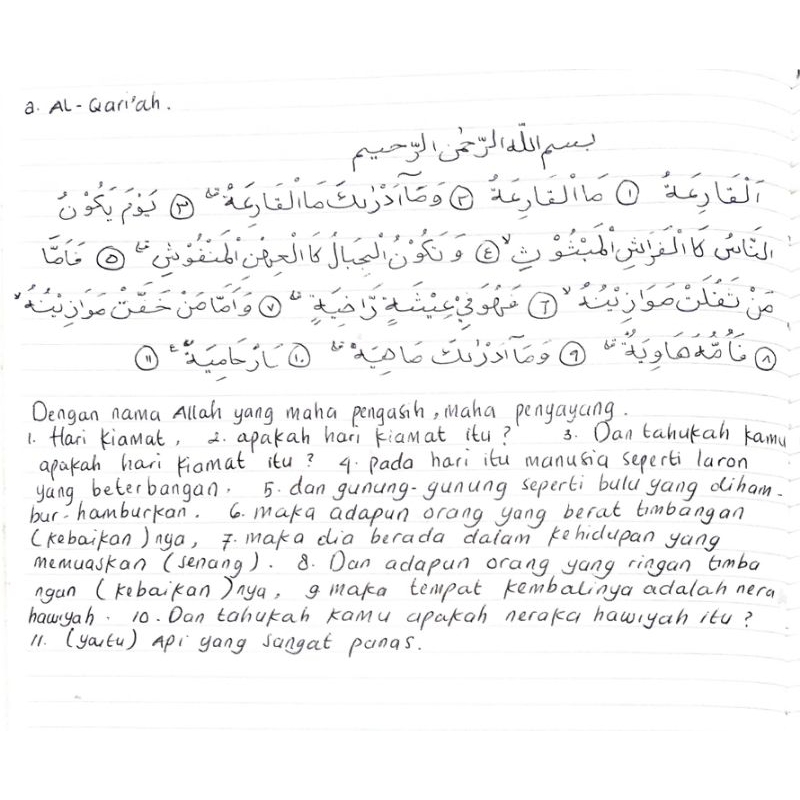 a. AL-Qari'ah.
بسم اللّٰه الرّحمٰن الرّحيم
اَلْقَارِعَةُ ١ مَا الْقَارِعَةُ ٢ وَمَآ اَدْرٰىكَ مَا الْقَارِعَةُ ۗ ٣ يَوْمَ يَكُوْنُ
النَّاسُ كَا الْفَرَاشِ الْمَبْثُوْثِ ۙ ٤ وَتَكُوْنُ الْجِبَالُ كَا الْعِهْنِ الْمَنْفُوْشِ ۗ ٥ فَاَمَّا
مَنْ ثَقُلَتْ مَوَازِيْنُهُ ۙ ٦ فَهُوَ فِيْ عِيْشَةٍ رَّاضِيَةٍ ۗ ٧ وَاَمَّا مَنْ خَفَّتْ مَوَازِيْنُهُ ۙ
٨ فَاُمُّهُ هَاوِيَةٌ ۗ ٩ وَمَآ اَدْرٰىكَ مَاهِيَهْ ۗ ١٠ نَارٌ حَامِيَةٌ ࣖ ١١
Dengan nama Allah yang maha pengasih, maha penyayang.
1. Hari kiamat, 2. apakah hari kiamat itu? 3. Dan tahukah kamu
apakah hari kiamat itu? 4. pada hari itu manusia seperti laron
yang beterbangan. 5. dan gunung-gunung seperti bulu yang diham-
bur-hamburkan. 6. maka adapun orang yang berat timbangan
(kebaikan)nya, 7. maka dia berada dalam kehidupan yang
memuaskan (senang). 8. Dan adapun orang yang ringan timba
ngan (kebaikan)nya, 9 maka tempat kembalinya adalah nera
hawiyah. 10. Dan tahukah kamu apakah neraka hawiyah itu?
11. (yaitu) Api yang sangat panas.